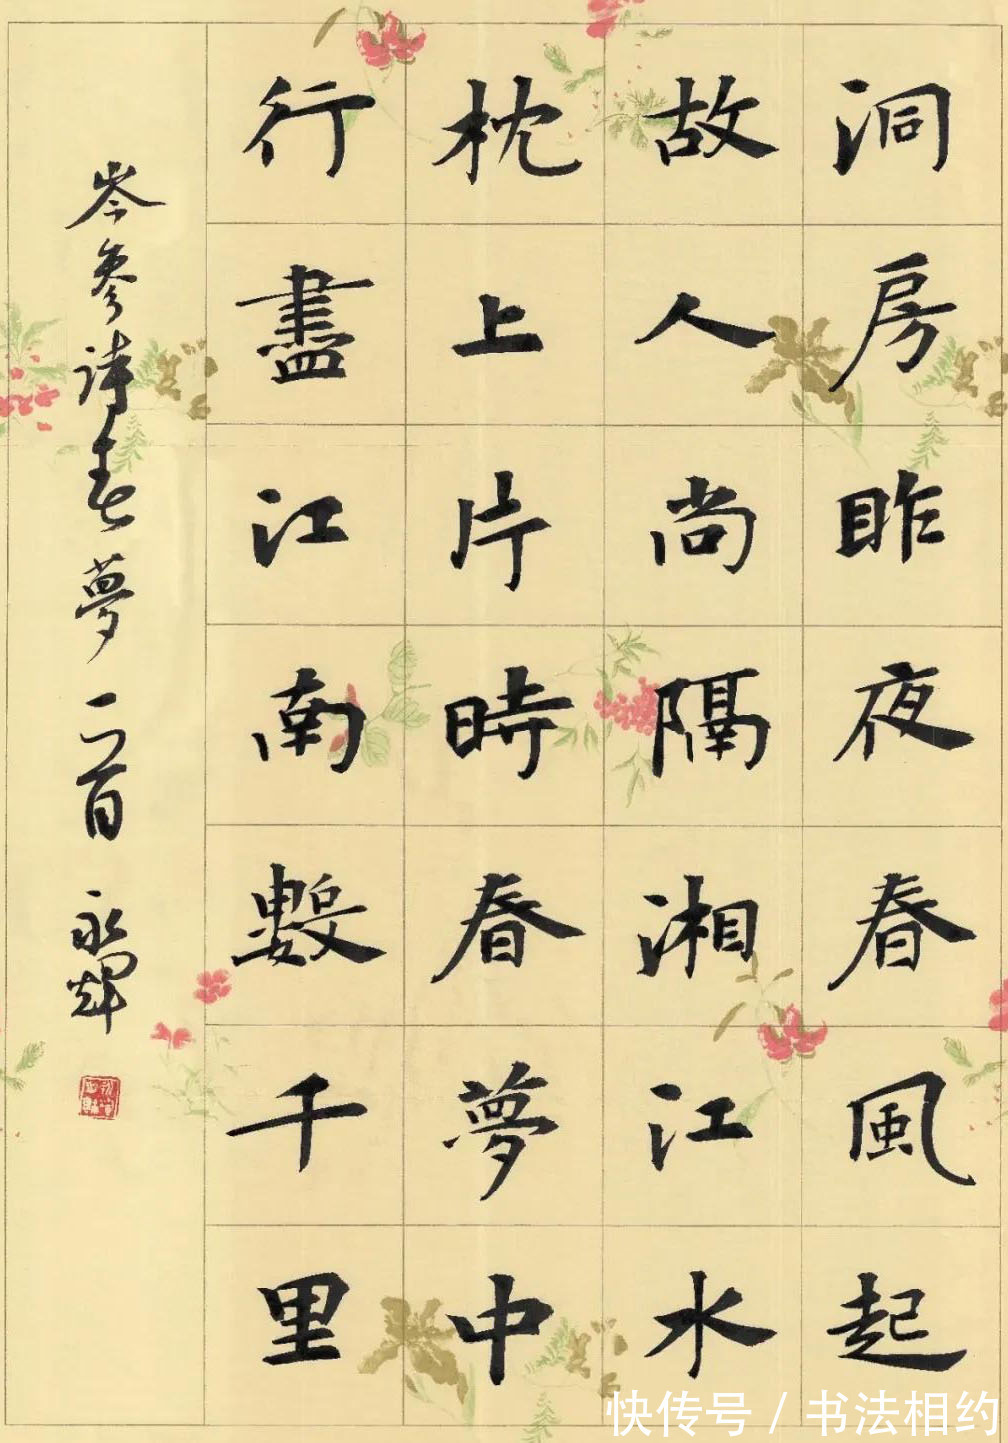 洞房昨夜春風起
故人尚隔湘江水
枕上片時春夢中
行盡江南數千里
岑參詩春夢一首 永輝
快传号 / 书法相约